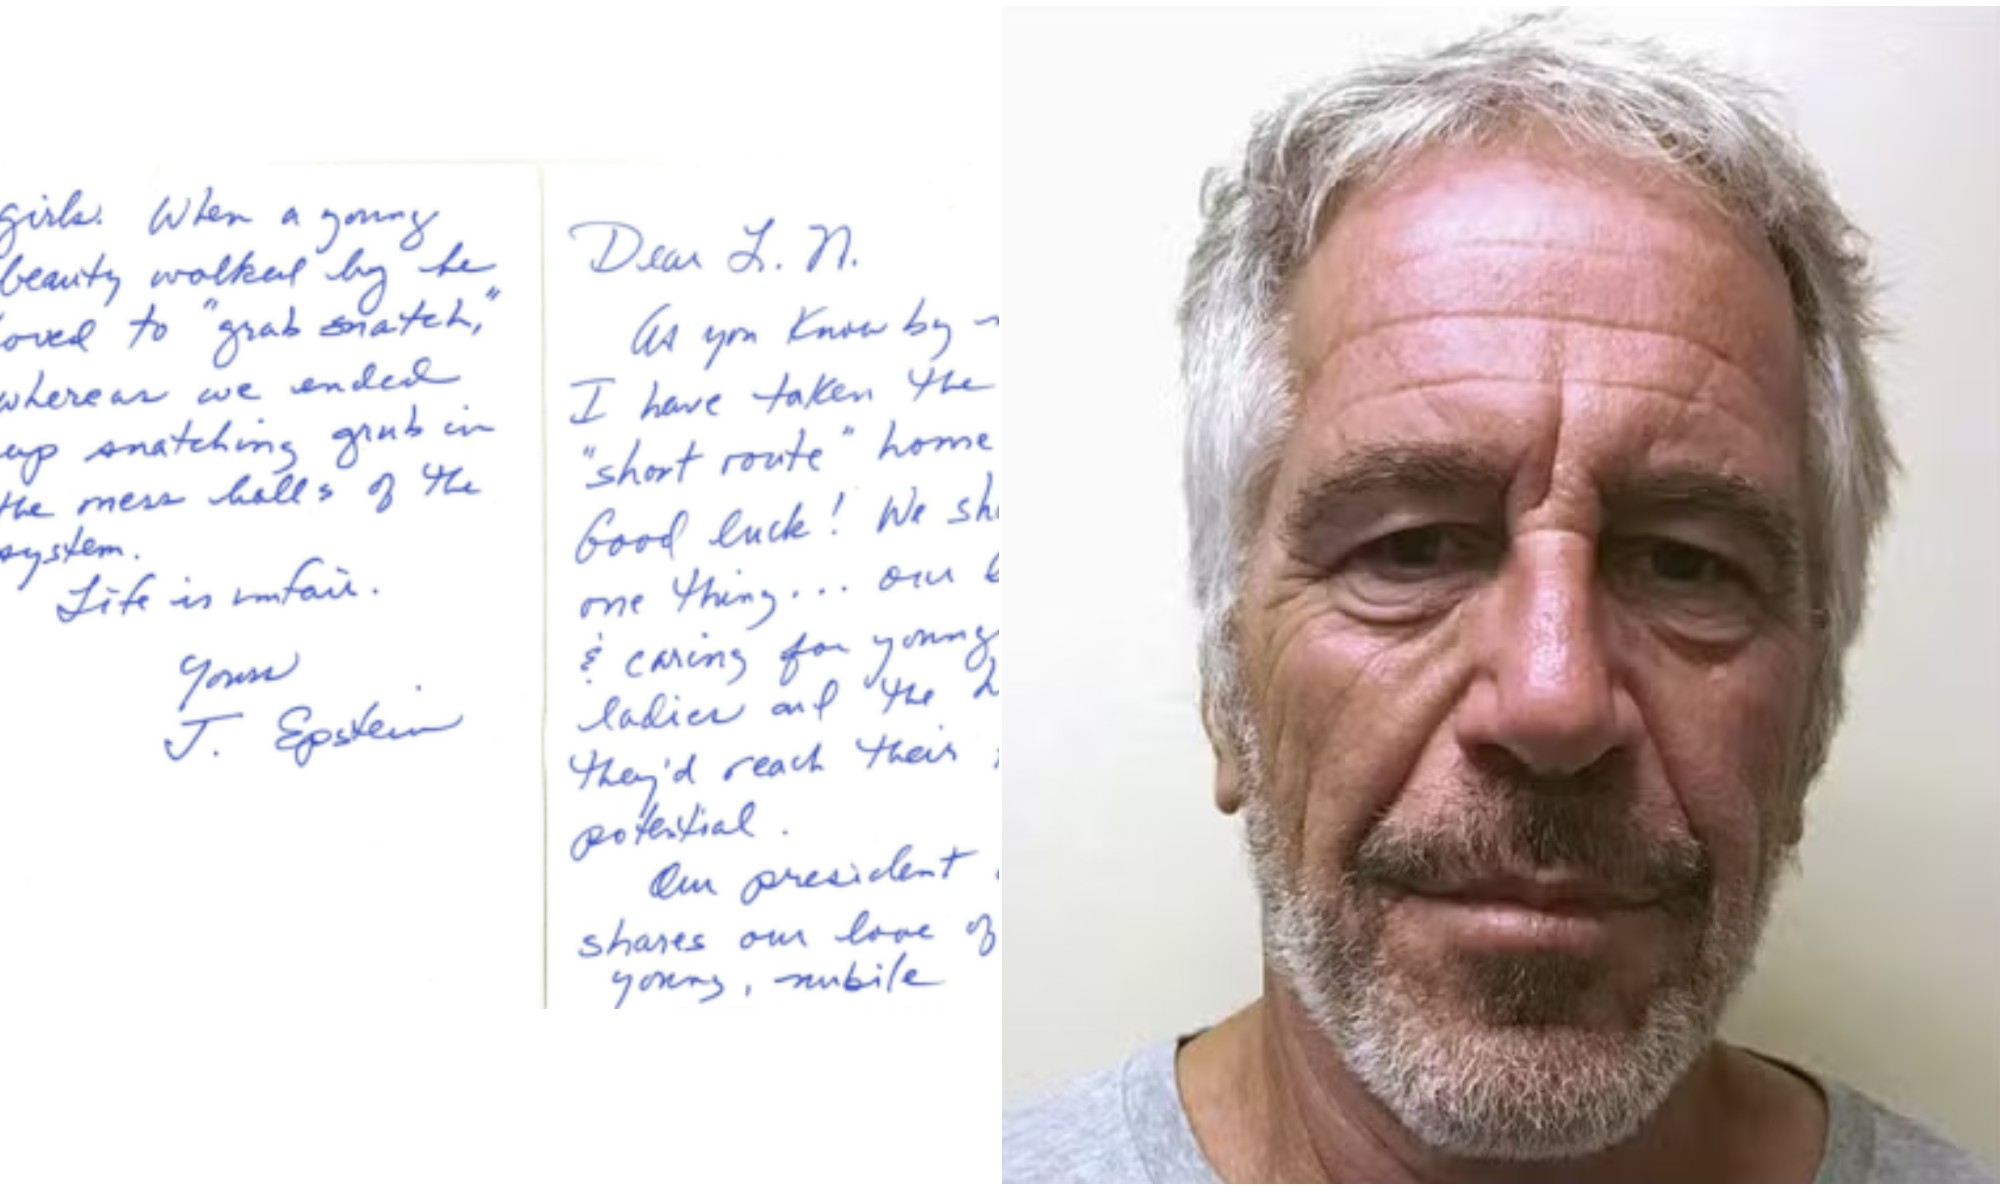 girls. When a young
beauty walked by he
loved to "grab snatch,"
whereas we ended
up snatching grub in
the mess halls of the
system.
Life is unfair.
Yours
J. Epstein
Dear L. N.
As you know by
I have taken the
"short route" home
Good luck! We
one thing... our
& caring for young
ladies and the
they'd reach their
potential.
Our president
shares our love of
young, nubile